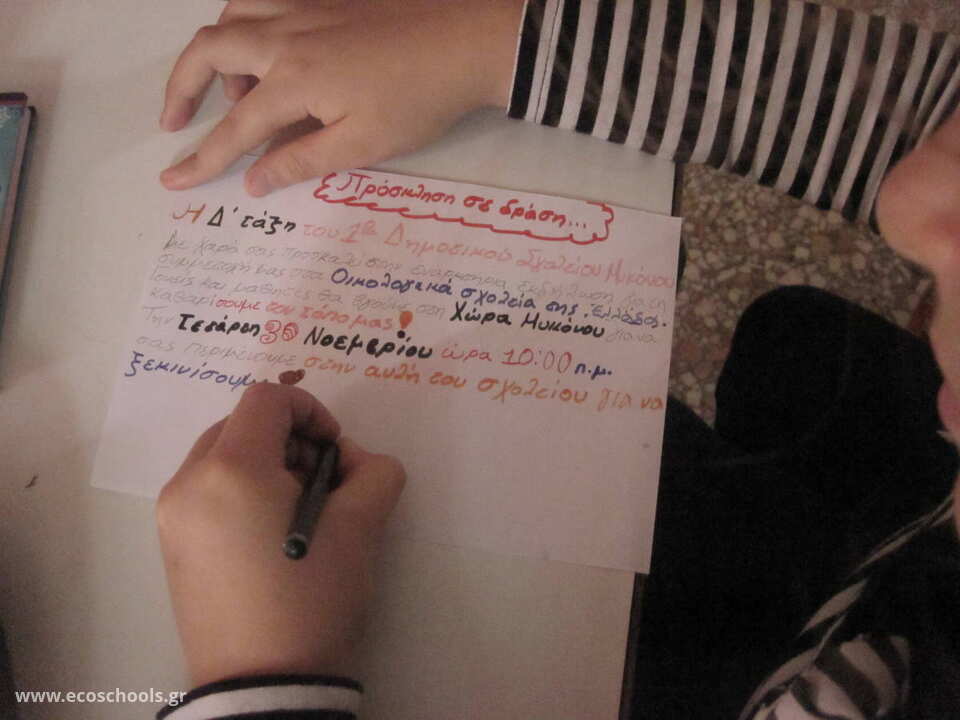 Πρόσκληση σε δράση...
Η Δ' τάξη του 1ου Δημοσικού Σχολείου Μυκόνου
με χαρά σας προσκαλεί στην εναρκτήρια εκδήλωση για τη
συμμετοχή μας στα Οικολογικά σχολεία της Ελλάδος.
Γονείς και μαθητές θα βγούμε στη Χώρα Μυκόνου για να
καθαρίσουμε τον τόπο μας!
Την Τετάρτη 30 Νοεμβρίου ώρα 10:00 π.μ.
σας περιμένουμε στην αυλή του σχολείου για να
ξεκινίσουμε
www.ecoschools.gr